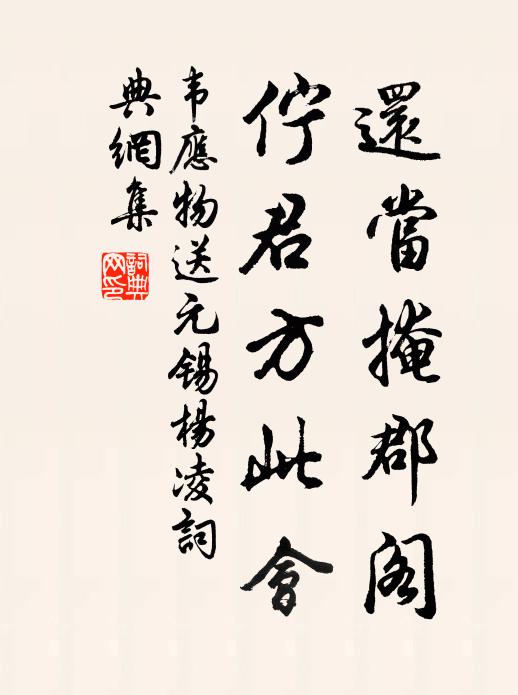 還當掩郡閣
佇君方此會
韦應物送元錫楊凌詞
典網集
詞典
网印